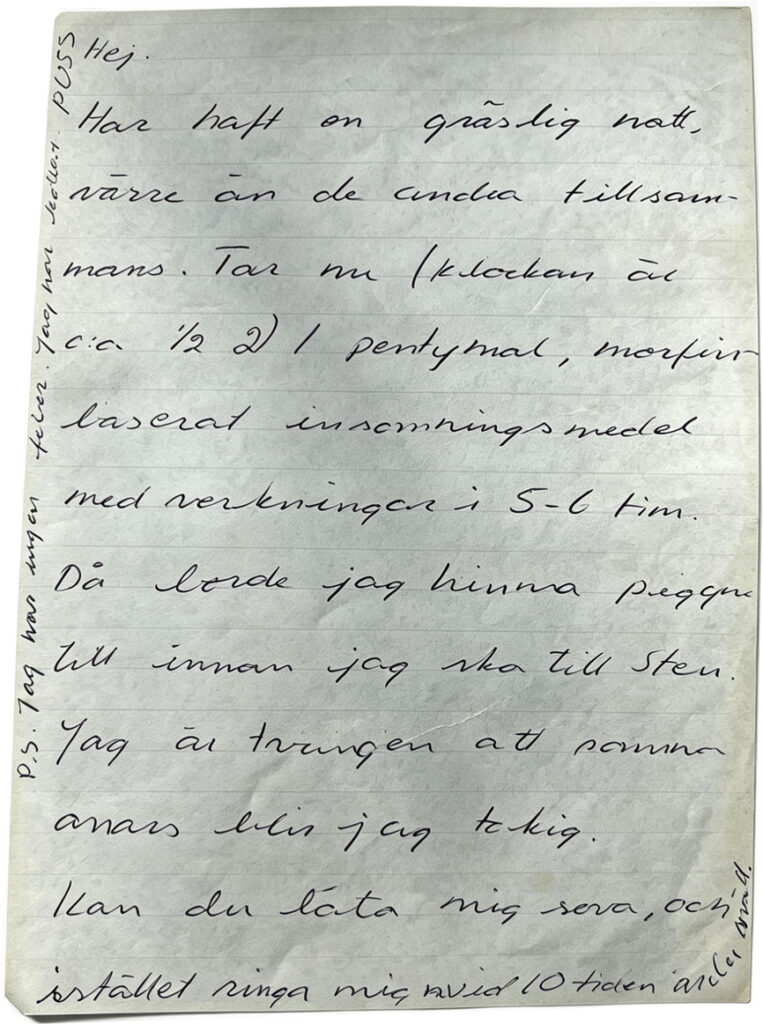 Hej.
Har haft en gräslig natt,
värre än de andra tillsam-
mans. Tar nu (klockan är
c:a 1/2 2) 1 pentymal, morfin-
baserat insomningsmedel
med verkningar i 5-6 tim.
Då borde jag hinna piggna
till innan jag ska till Sten.
Jag är tvungen att somna
anars blir jag tokig.
Kan du låta mig sova, och
istället ringa mig vid 10 tiden
P.S. Jag har ingen feber. Jag har kollat. PUSS